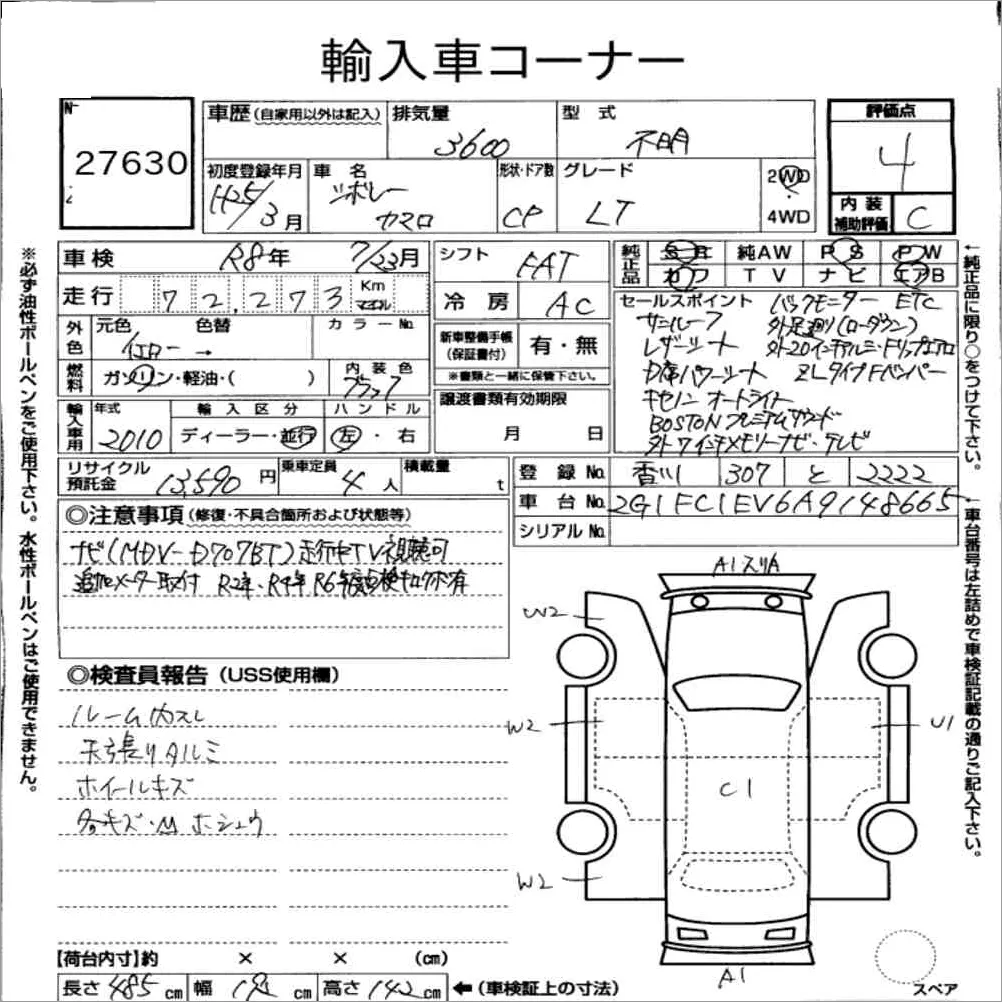 輸入車コーナー
No 27630
車歴(自家用以外は記入)
排気量 3600
型式 不明
評価点 4
初度登録年月 H25/3月
車名 シボレー カマロ
形状・ドア数 CP
グレード LT
2WD
4WD
内装補助評価 C
車検 R8年 7/23月
シフト FAT
純正品 純AW PS PW
カワ TV ナビ エアB
走行 72,273 Km マイル
冷房 AC
セールスポイント バックモニター ETC
サンルーフ 外足廻り(ローダウン)
レザーシート 外20インチアルミ・ドリップエアロ
D席パワーシート ZLタイプFバンパー
キセノン オートライト
BOSTONプレミアムサウンド
外7インチメモリーナビ・テレビ
外色 元色 色替 カラーNo.
イエロー →
新車整備手帳(保証書付) 有・無
※書類と一緒に保管下さい。
燃料 ガソリン・軽油・( )
内装色 ブラック
譲渡書類有効期限
月 日
輸入車用 年式 2010
輸入区分 ディーラー・並行
ハンドル 左・右
リサイクル預託金 13,590円
乗車定員 4人
積載量 t
登録No. 香川 307 と 2222
車台No. 2G1FC1EV6A9148665
シリアルNo.
◎注意事項(修復・不具合箇所および状態等)
ナビ(MDV-D707BT)走行中TV視聴可
追加メーター取付 R2年、R4年 R6年度点検キロク簿有
◎検査員報告(USS使用欄)
ルーム内スレ
天張りタルミ
ホイールキズ
各キズ・凹 ホシュウ
A1スリA
W2
W2
U1
C1
W2
A1
スペア
【荷台内寸】約 × × (cm)
長さ 485 cm 幅 192 cm 高さ 142 cm ←(車検証上の寸法)
※必ず油性ボールペンをご使用下さい。水性ボールペンはご使用できません。
←純正品に限り○をつけて下さい。
←車台番号は左詰めで車検証記載の通りご記入下さい。